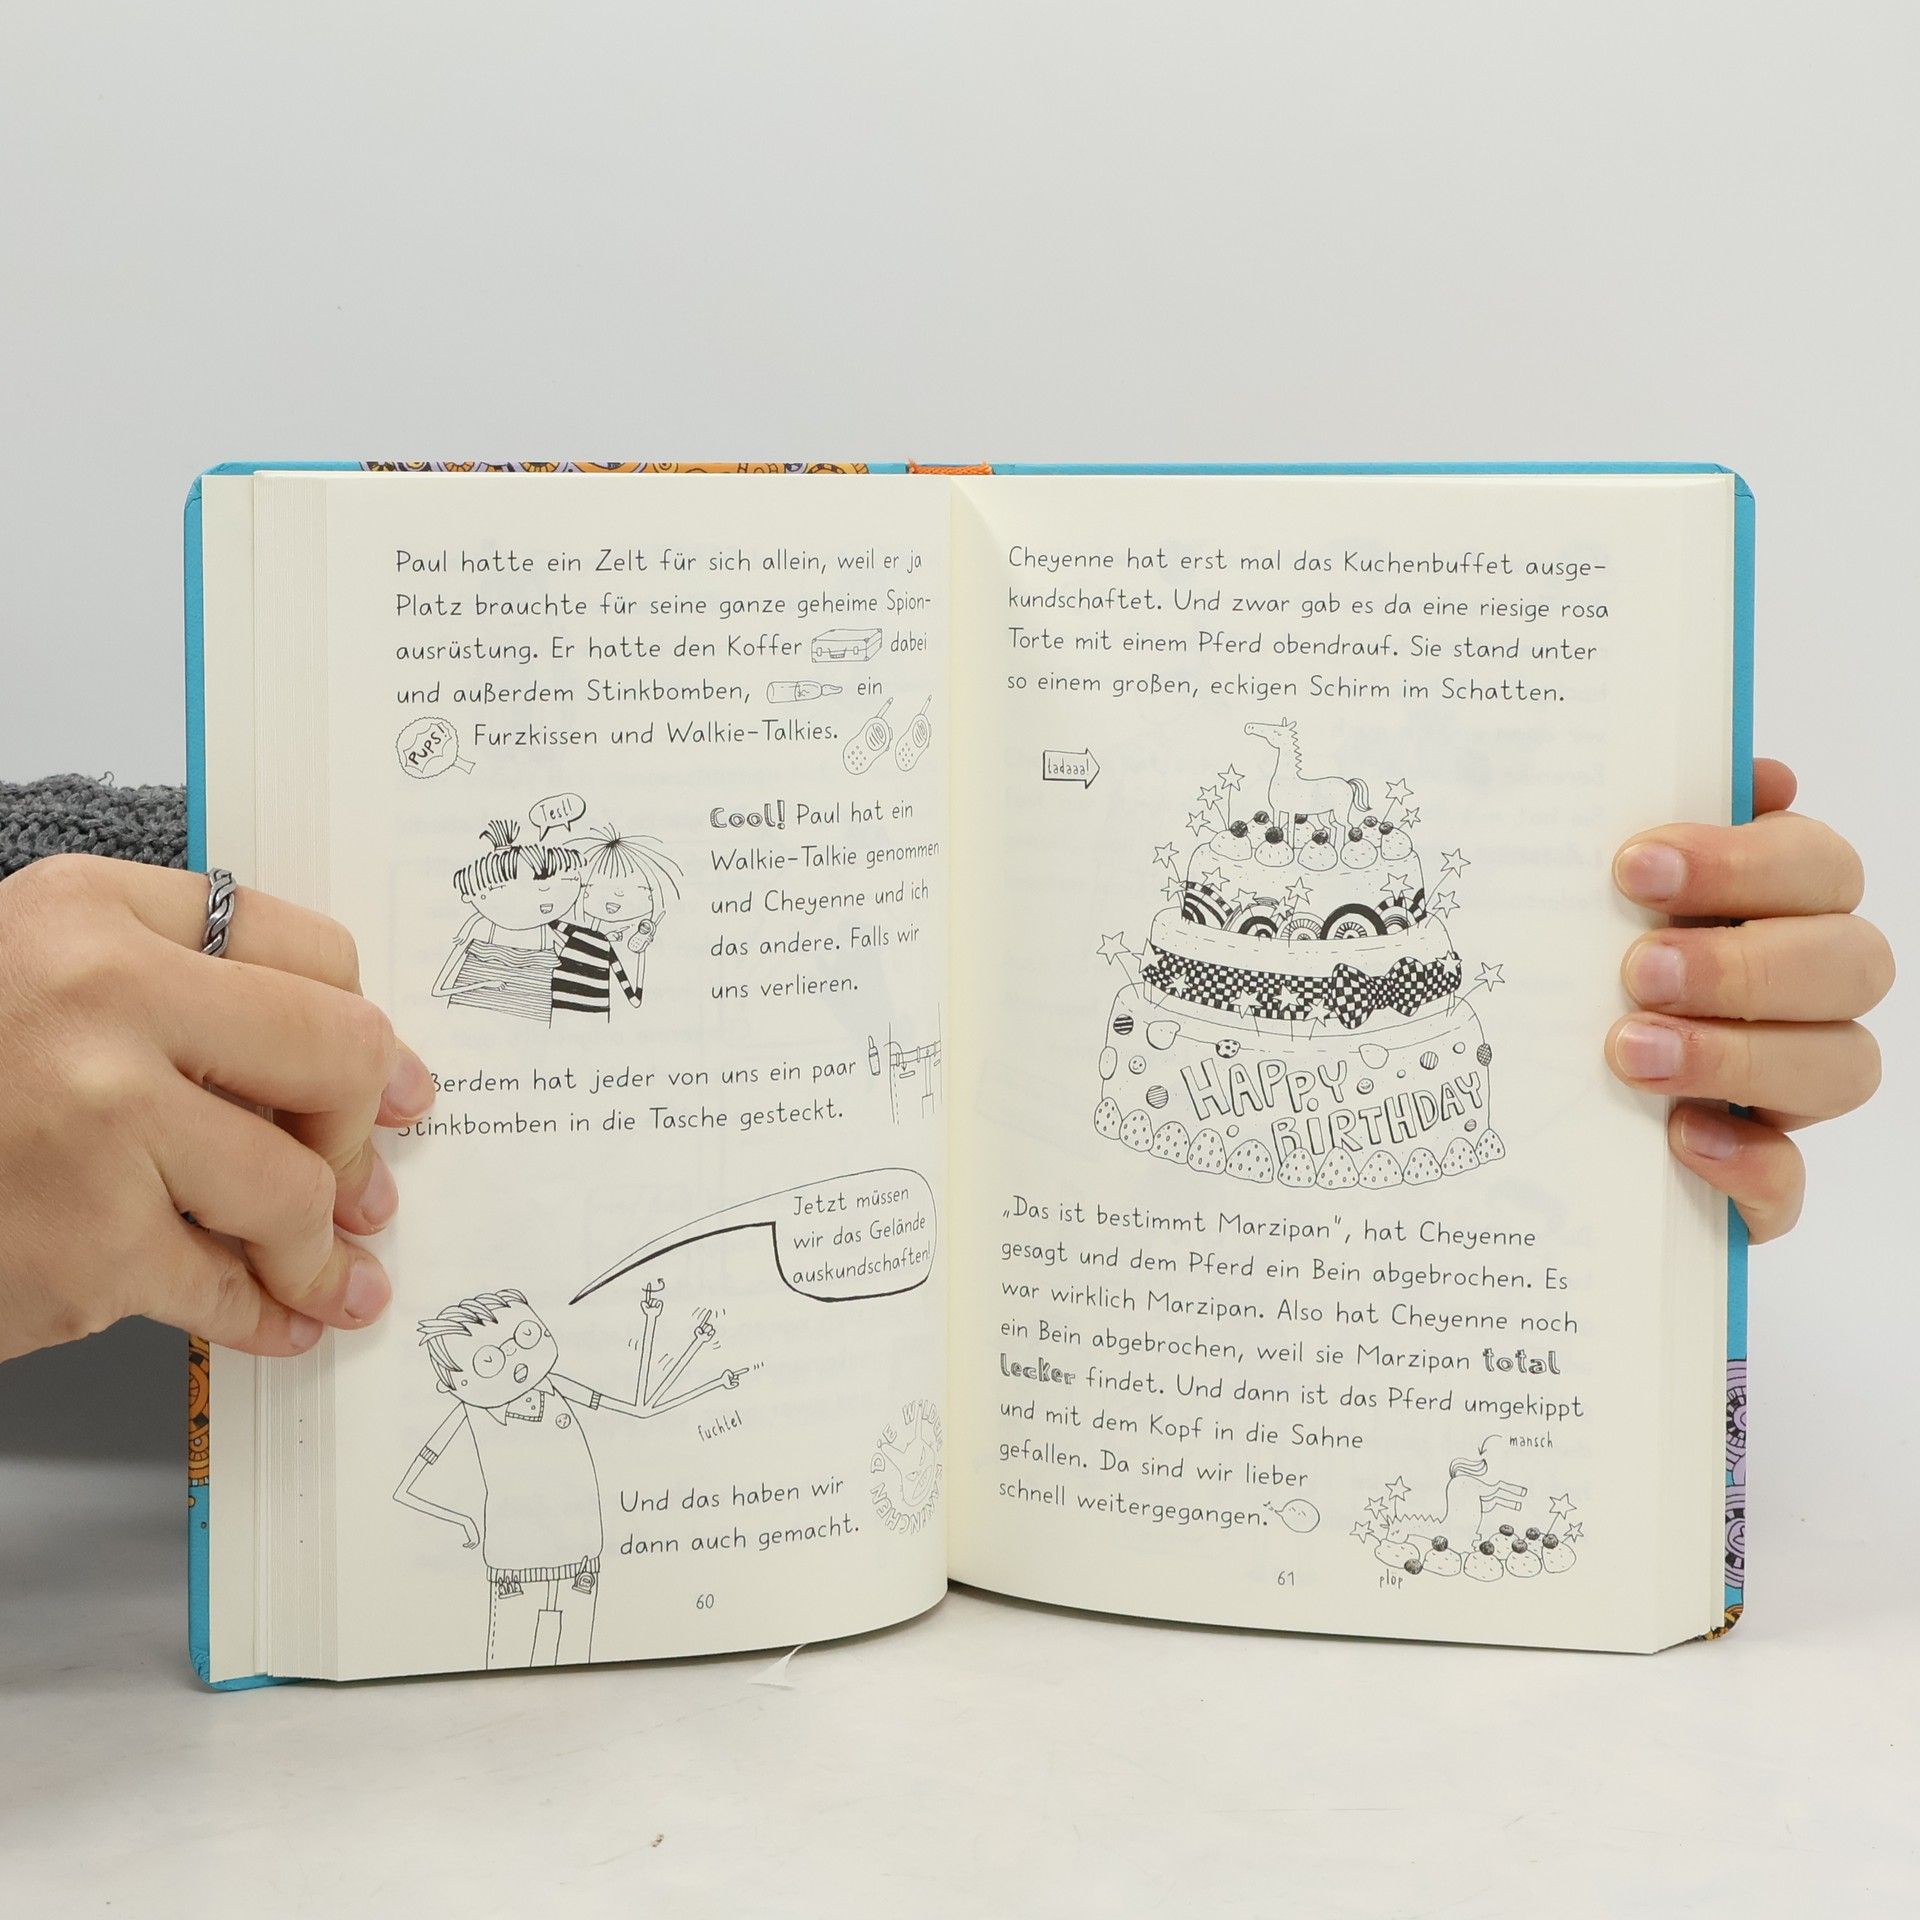 Paul hatte ein Zelt für sich allein, weil er ja
Platz brauchte für seine ganze geheime Spion-
ausrüstung. Er hatte den Koffer dabei
und außerdem Stinkbomben, ein
PUPS!
Furzkissen und Walkie-Talkies.
Test!
Cool! Paul hat ein
Walkie-Talkie genommen
und Cheyenne und ich
das andere. Falls wir
uns verlieren.
ßerdem hat jeder von uns ein paar
Stinkbomben in die Tasche gesteckt.
Jetzt müssen
wir das Gelände
auskundschaften!
fuchtel
DIE WILDEN KANINCHEN
Und das haben wir
dann auch gemacht.
60
Cheyenne hat erst mal das Kuchenbuffet ausge-
kundschaftet. Und zwar gab es da eine riesige rosa
Torte mit einem Pferd obendrauf. Sie stand unter
so einem großen, eckigen Schirm im Schatten.
tadaaa!
HAPPY
BIRTHDAY
„Das ist bestimmt Marzipan", hat Cheyenne
gesagt und dem Pferd ein Bein abgebrochen. Es
war wirklich Marzipan. Also hat Cheyenne noch
ein Bein abgebrochen, weil sie Marzipan total
lecker findet. Und dann ist das Pferd umgekippt
und mit dem Kopf in die Sahne
gefallen. Da sind wir lieber
schnell weitergegangen.
mansch
plöp
61